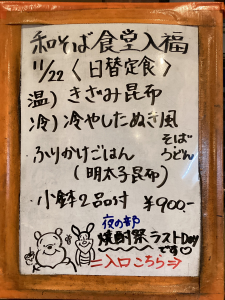 和そば食堂入福
11/22〈日替定食〉
温）きざみ昆布
冷）冷やしたぬき風
そば
うどん
・ふりかけごはん
（明太子昆布）
・小鉢2品付 ¥900-
夜の部
焼酎祭ラストDay
です
⇒入口こちら⇒